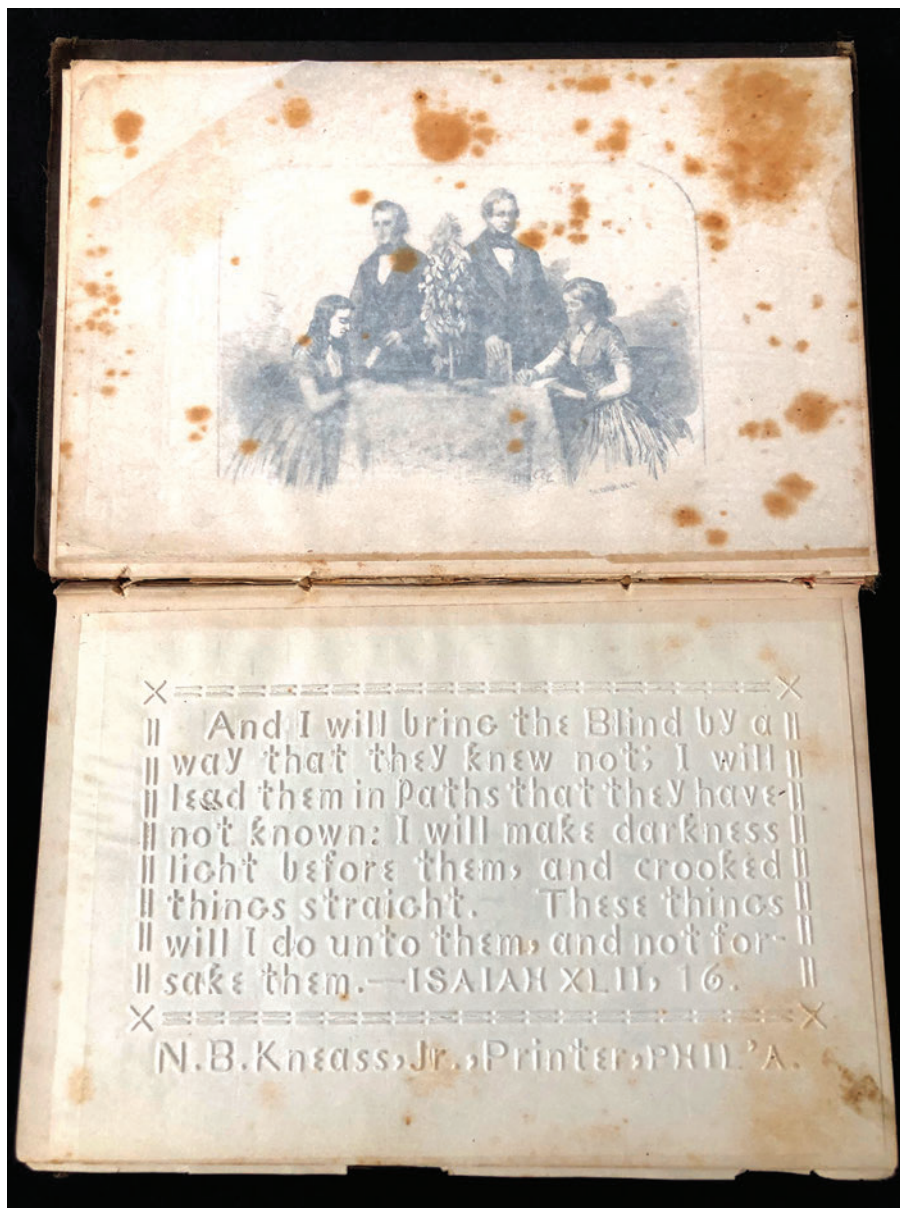 And I will bring the Blind by a
way that they knew not; I will
lead them in Paths that they have
not known: I will make darkness
light before them, and crooked
things straight. These things
will I do unto them, and not for-
sake them.—ISAIAH XLII, 16.
N.B.Kneass, Jr., Printer, PHIL'A.